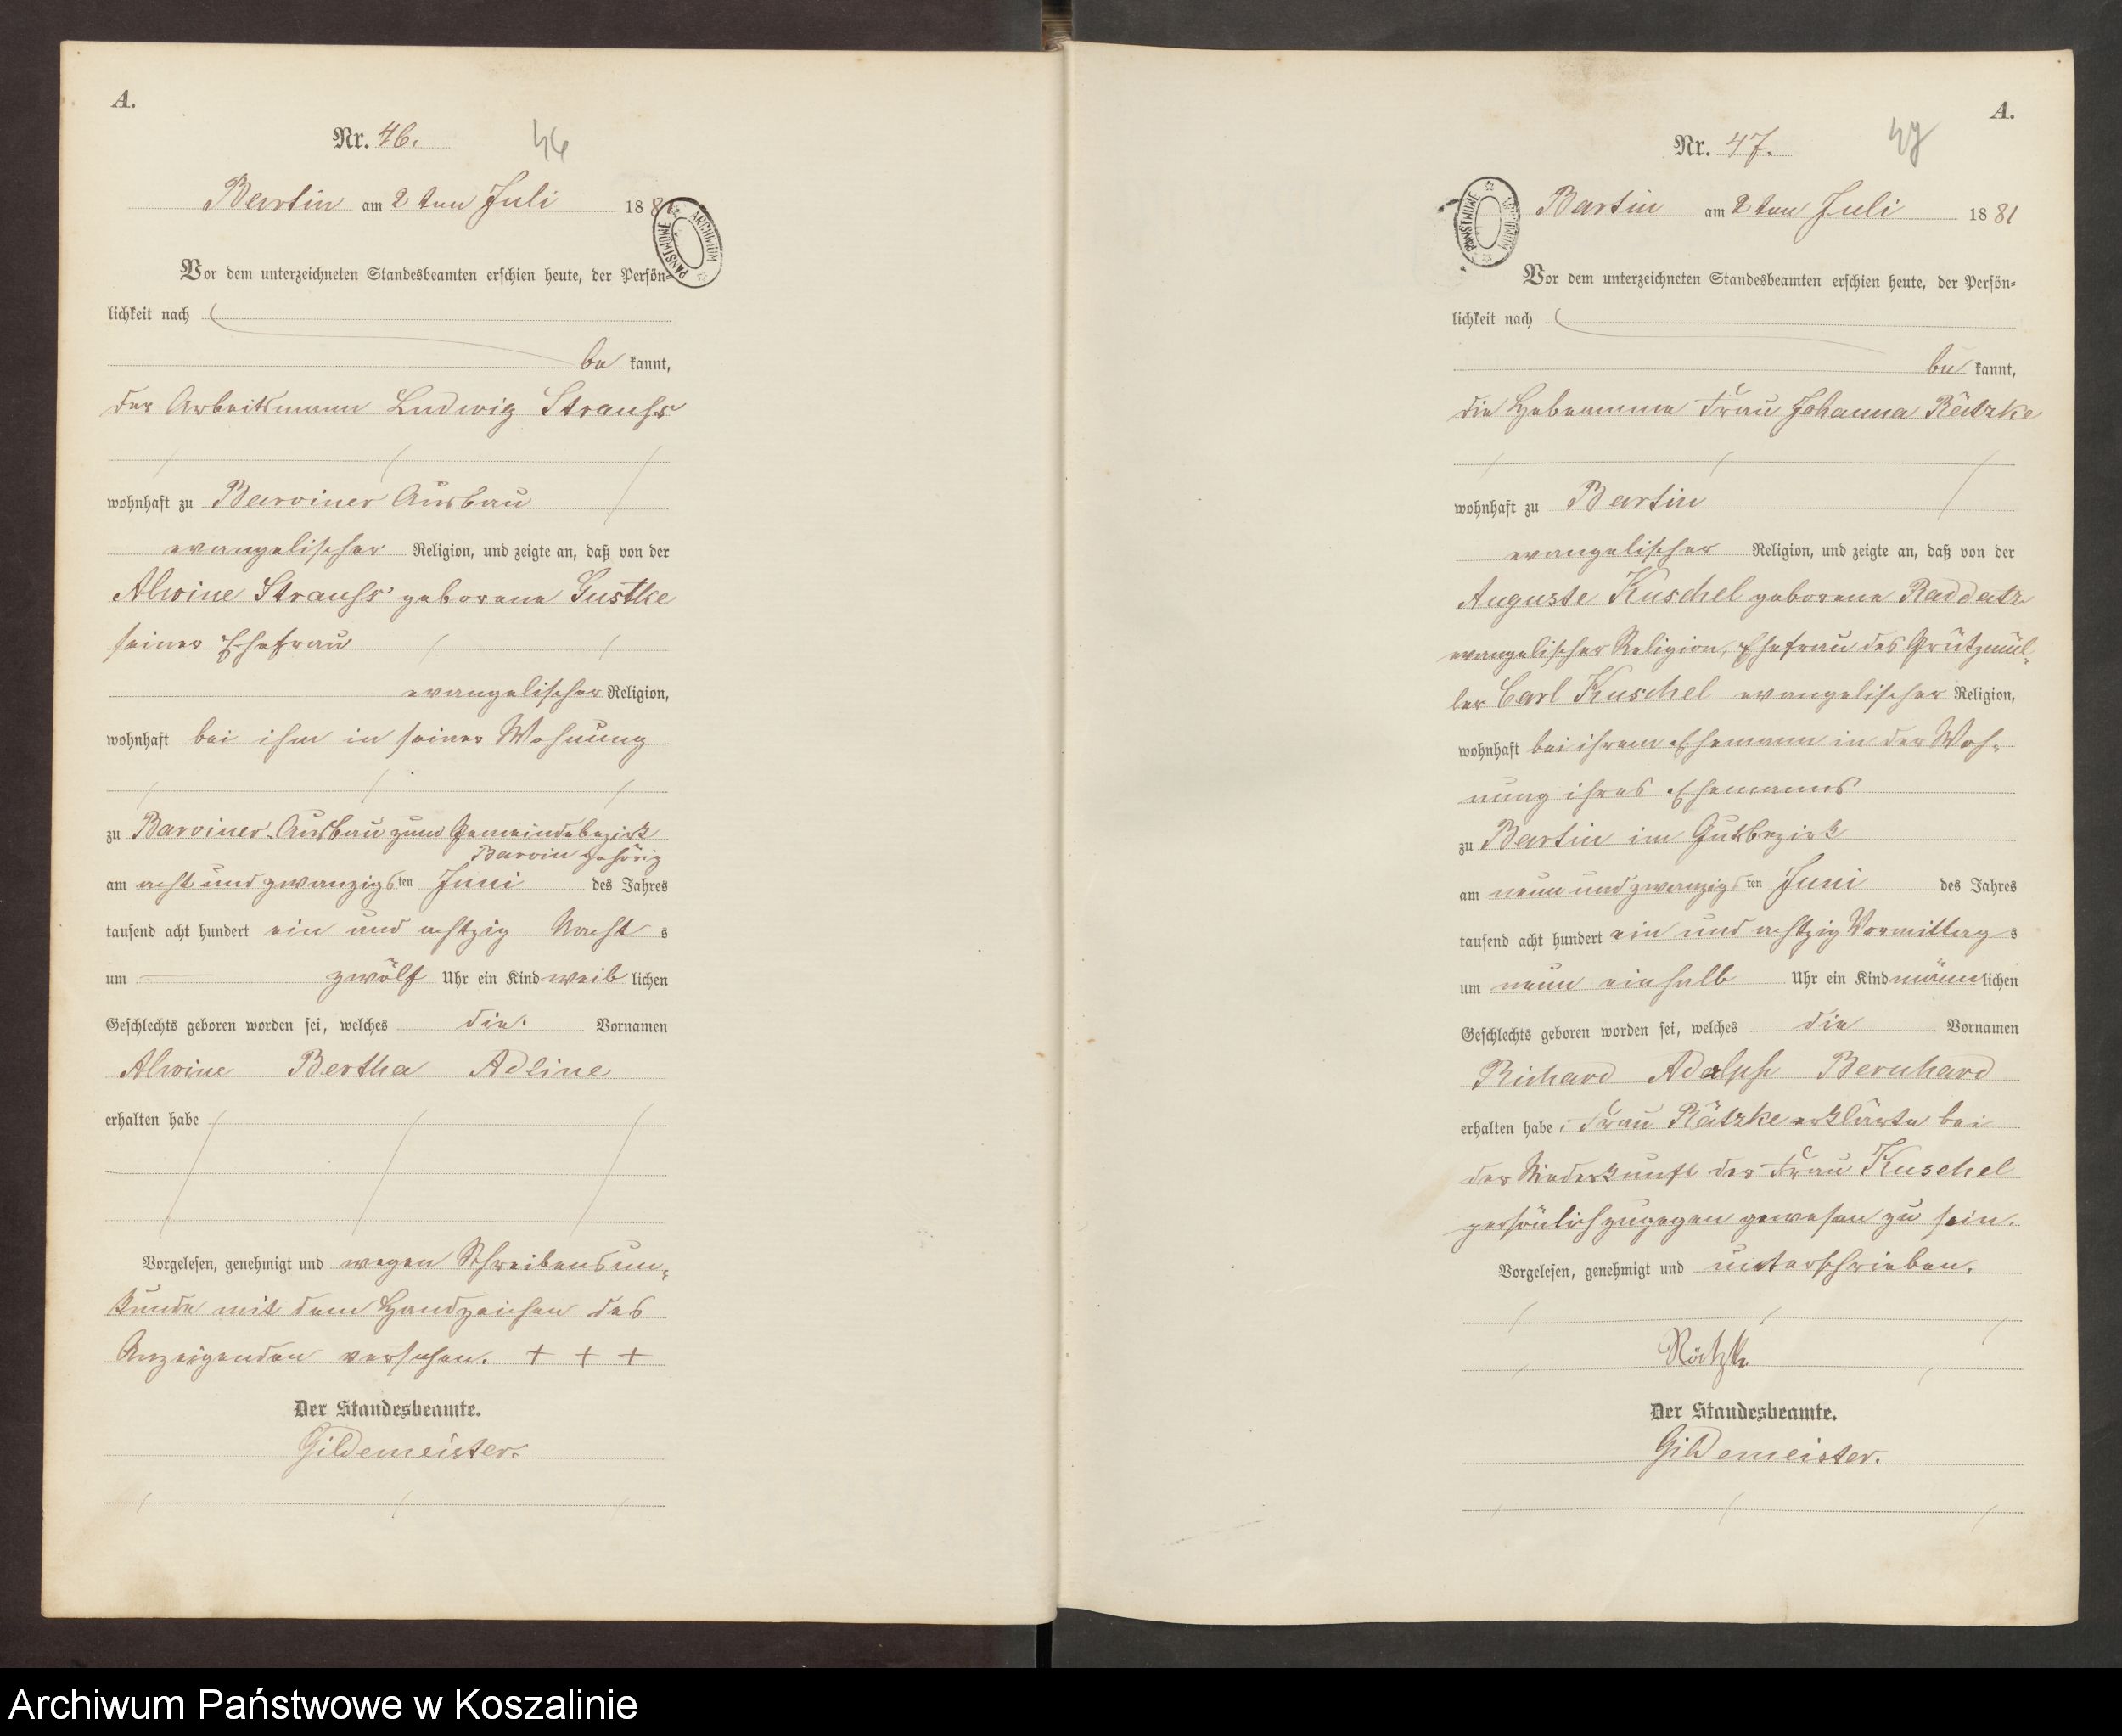 A.
Nr. 46.
46
Bartin am 2ten Juli 1881
ARCHIWUM PAŃSTWOWE
Vor dem unterzeichneten Standesbeamten erschien heute, der Persön-
lichkeit nach
be kannt,
der Arbeitsmann Ludwig Strauss
wohnhaft zu Barviner Ausbau
evangelischer Religion, und zeigte an, daß von der
Alwine Strauss geborene Gustke
seiner Ehefrau
evangelischer Religion,
wohnhaft bei ihm in seiner Wohnung
zu Barviner Ausbau zum Gemeindebezirk
Barvin gehörig
am acht und zwanzigsten Juni des Jahres
tausend acht hundert ein und achtzig Nacht s
um zwölf Uhr ein Kind weib lichen
Geschlechts geboren worden sei, welches die Vornamen
Alwine Bertha Adline
erhalten habe
Vorgelesen, genehmigt und wegen Schreibensun-
kunde mit dem Handzeichen des
Anzeigenden versehen. + + +
Der Standesbeamte.
Gildemeister.
A.
Nr. 47.
47
ARCHIWUM PAŃSTWOWE
Bartin am 2ten Juli 1881
Vor dem unterzeichneten Standesbeamten erschien heute, der Persön-
lichkeit nach
be kannt,
die Hebeamme Frau Johanna Rätzke
wohnhaft zu Bartin
evangelischer Religion, und zeigte an, daß von der
Auguste Kuschel geborene Raddatz
evangelischer Religion, Ehefrau des Grützmül-
ler Carl Kuschel evangelischer Religion,
wohnhaft bei ihrem Ehemann in der Woh-
nung ihres Ehemanns
zu Bartin im Gutsbezirk
am neun und zwanzigsten Juni des Jahres
tausend acht hundert ein und achtzig Vormittag s
um neun einhalb Uhr ein Kind männ lichen
Geschlechts geboren worden sei, welches die Vornamen
Richard Adolph Bernhard
erhalten habe; Frau Rätzke erklärte bei
der Niederkunft der Frau Kuschel
persönlich zugegen gewesen zu sein.
Vorgelesen, genehmigt und unterschrieben.
Rätzke
Der Standesbeamte.
Gildemeister.
Archiwum Państwowe w Koszalinie